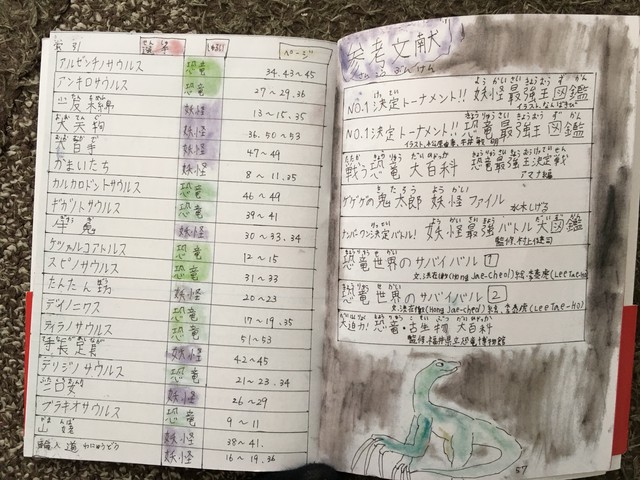 索引 選手 しゅるい ページ
アルゼンチノサウルス 恐竜 34.43〜45
アンキロサウルス 恐竜 27〜29.36
妖怪 13〜15.35
大天狗 妖怪 36.50〜53
大百手 妖怪 47〜49
かまいたち 妖怪 8〜11.35
カルカロドントサウルス 恐竜 46〜49
ギガノトサウルス 恐竜 39〜41
牛鬼 妖怪 30〜33.34
ケツァルコアトルス 恐竜 12〜15
スピノサウルス 恐竜 31〜33
たんたん坊 妖怪 20〜23
デイノニクス 恐竜 17〜19.35
ティラノサウルス 恐竜 51〜53
手長足長 妖怪 42〜45
テリジノサウルス 恐竜 21〜23.34
三口女 妖怪 26〜29
ブラキオサウルス 恐竜 9〜11
妖怪 38〜41.
輪入道 わにゅうどう 妖怪 16〜19.36
参考文献
さんこうぶんけん
NO.1決定トーナメント!! 妖怪最強王図鑑
NO.1決定トーナメント!! 恐竜最強王図鑑
戦う恐竜大百科 恐竜最強王決定戦
アマナ編
ゲゲゲの鬼太郎 妖怪ファイル 水木しげる
ナンバーワン決定バトル! 妖怪最強バトル大図鑑
監修.村上健司
恐竜世界のサバイバル1
文.洪在徹(Hong Jae-cheol) 絵.李泰虎(Lee Tae-Ho)
恐竜世界のサバイバル2
文.洪在徹(Hong Jae-cheol) 絵.李泰虎(Lee Tae-Ho)
大迫力! 恐竜・古生物大百科
監修.福井県立恐竜博物館
57